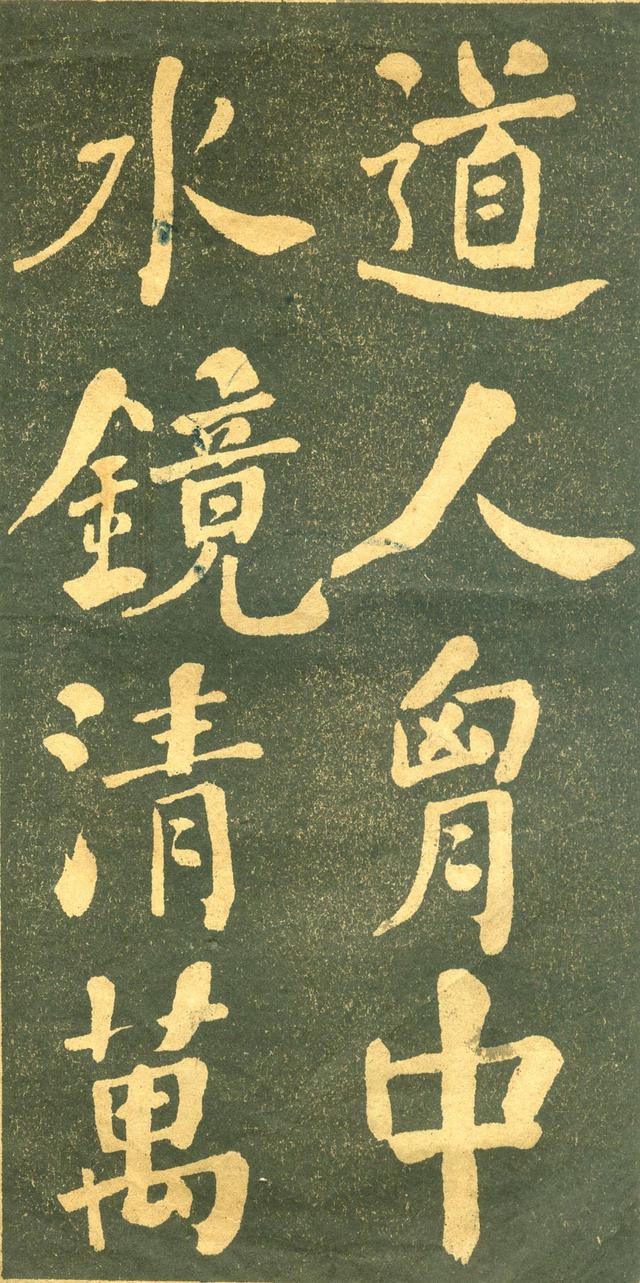 道人胷中
水鏡清萬